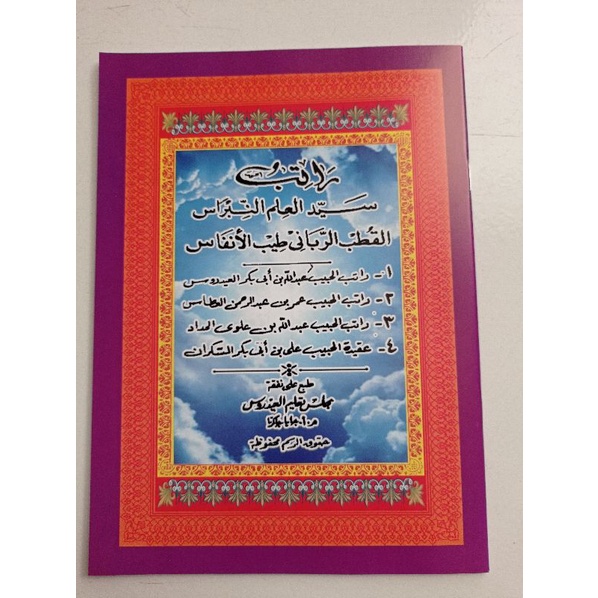 رَاتِبُ
سَيِّد العِلم النِّبْرَاس
القُطب الرَّبَّانِي طِيب الأَنفَاس
١- راتب الحبيب عبدالله بن أبي بكر العيدروس
٢- راتب الحبيب عمر بن عبد الرحمن العطاس
٣- راتب الحبيب عبد الله بن علوي الحداد
٤- عقيدة الحبيب علي بن أبي بكر السكران
طبع على نفقة
مجلس تعليم العيدروس
حقوق الرسم محفوظة